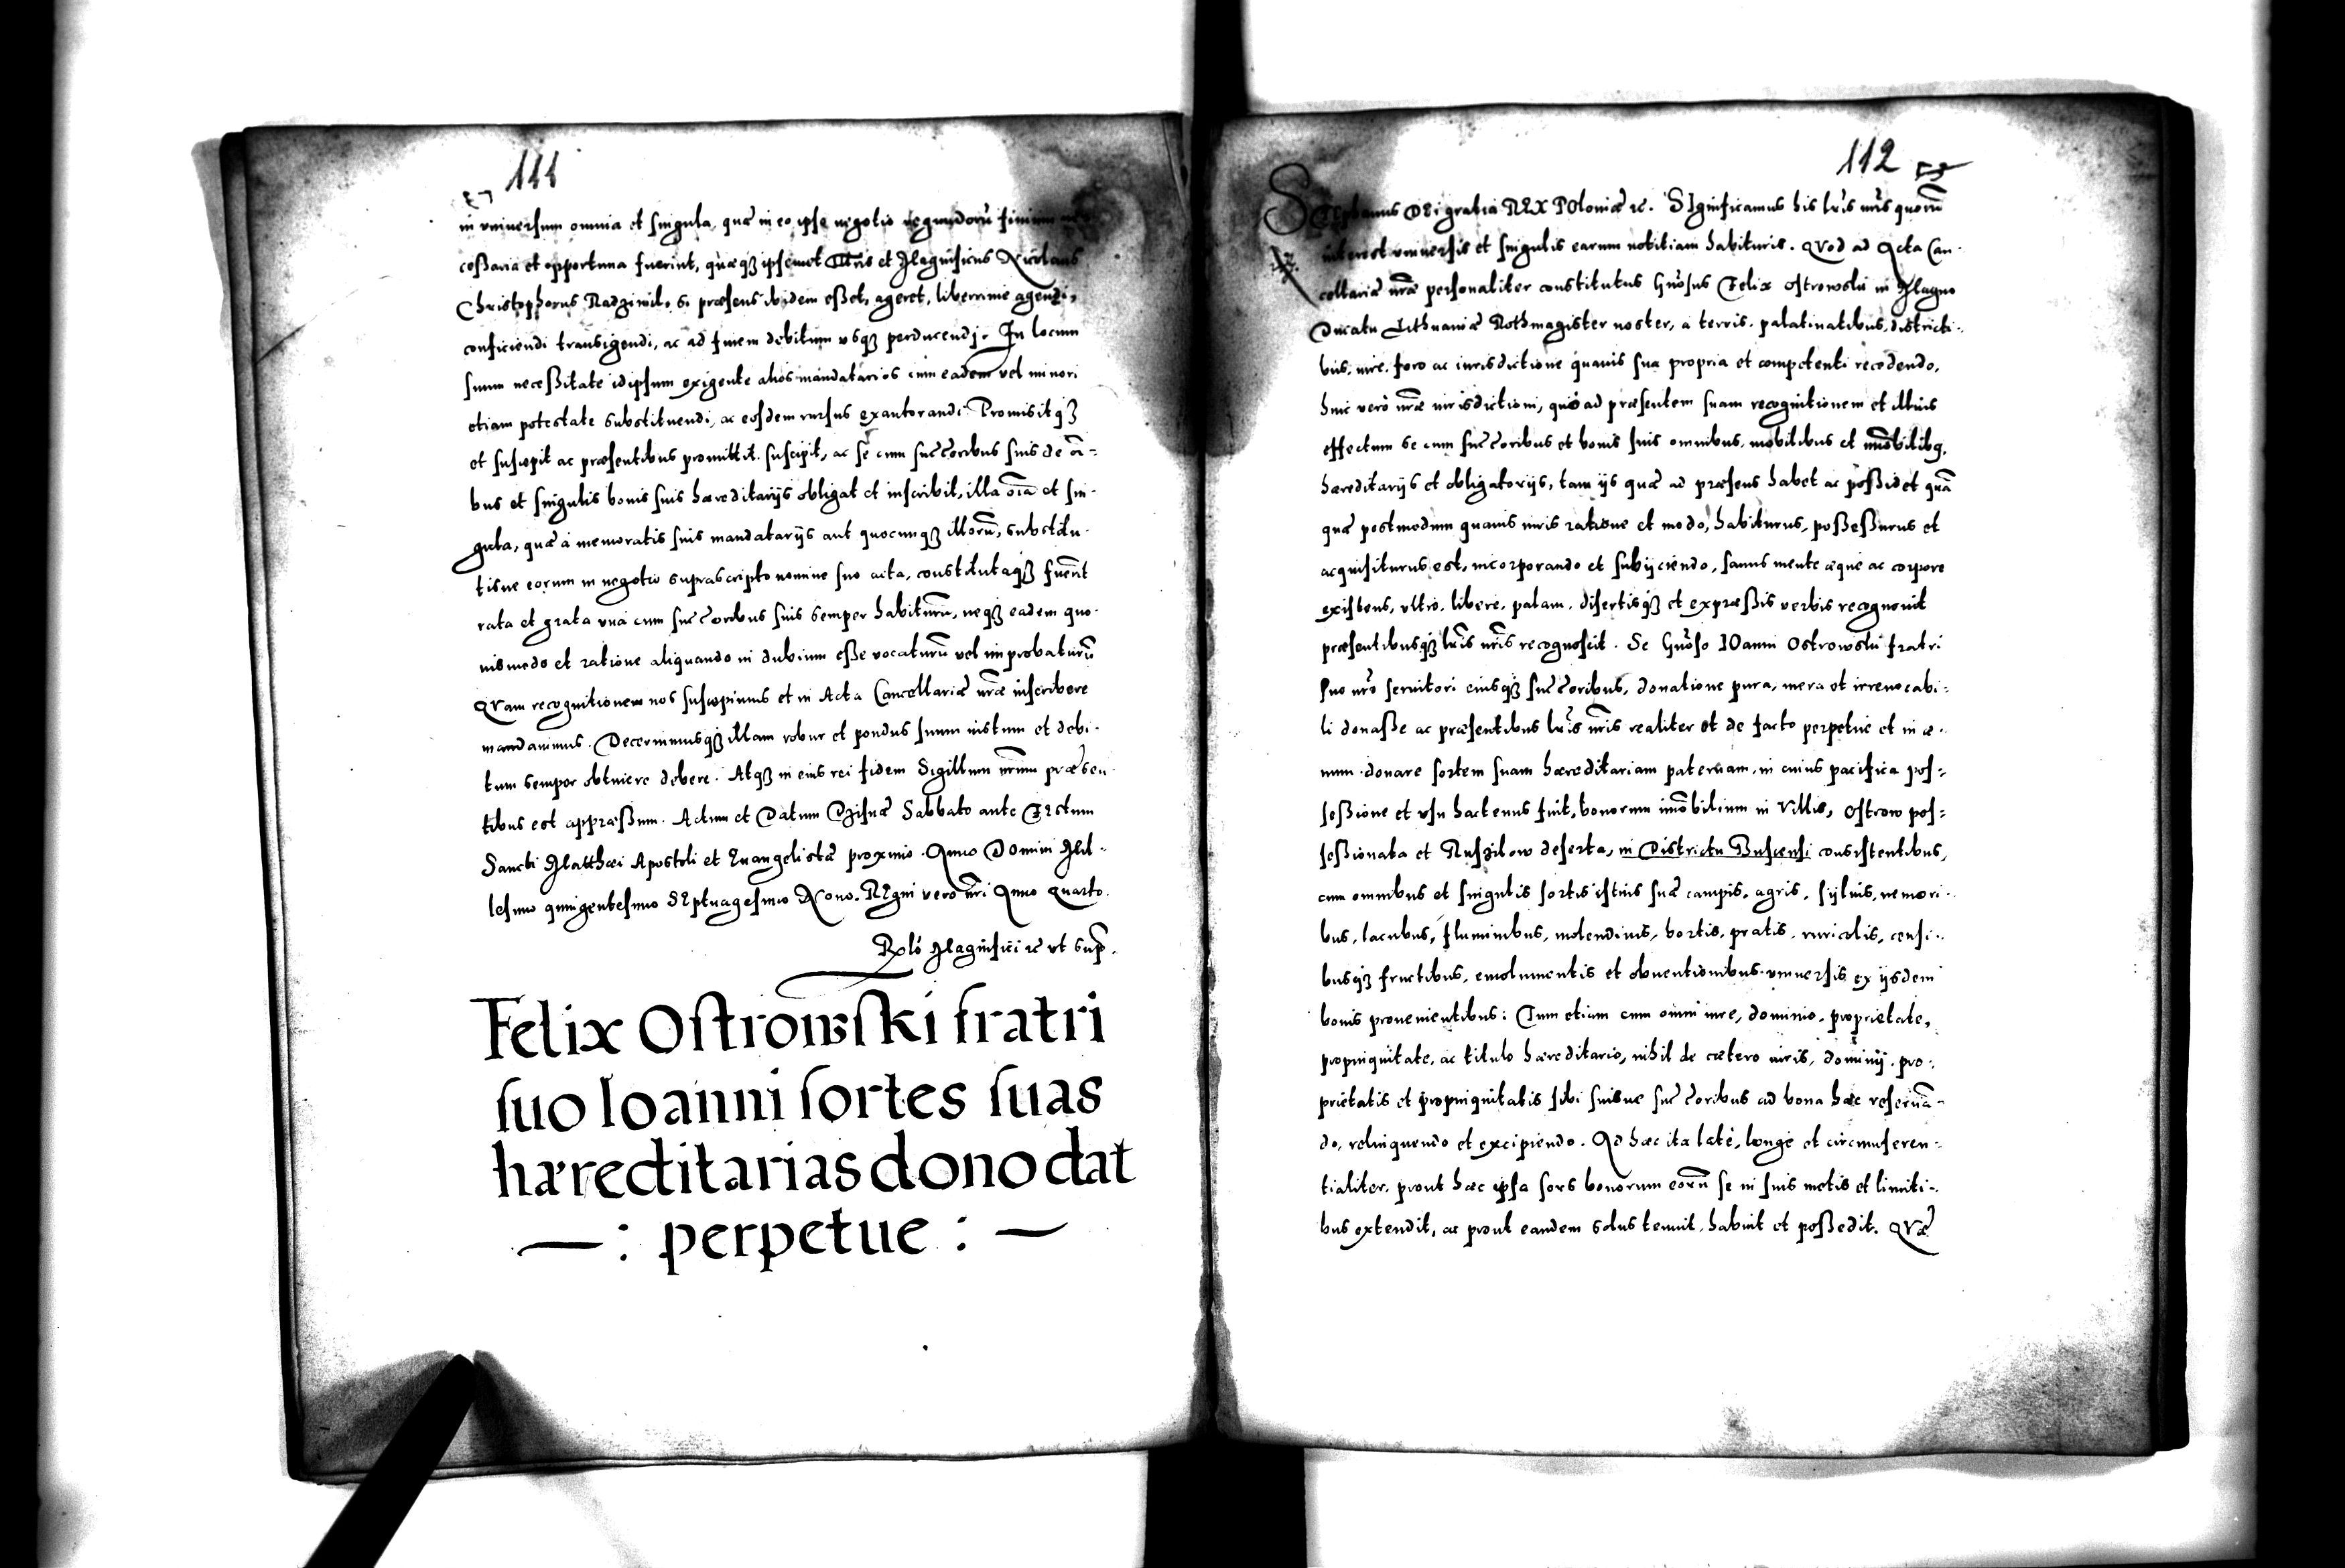 111
in vniuersum omnia et singula, quæ in eo ipso negotio regundorū finium ne
ceßaria et opportuna fuerint, quæqꝫ ipsemet Illris et Magnificus Nicolaus
Christophorus Radziuil, si præsens ibidem eßet, ageret, liberrime agendi,
conficiendi transigendi, ac ad finem debitum vsqꝫ perducendj. In locum
suum neceßitate idipsum exigente alios mandatarios cum eadem vel minori
etiam potestate substituendi, ac eosdem rursus exautorandi. Promisitqꝫ
et suscepit ac præsentibus promittit, suscipit, ac se cum succoribus suis de oī=
bus et singulis bonis suis hæreditarijs obligat et inscribit, illa oīa et sin-
gula, quæ á memoratis suis mandatarijs aut quocunqꝫ illorū, substitu-
tisue eorum in negotio suprascripto nomine suo acta, constitutaqꝫ fuerīt
rata et grata vná cum succoribus suis semper habiturū, neqꝫ eadem quo-
uismodo et ratione aliquando in dubium eße vocaturū vel improbaturū
QVam recognitionem nos suscepimus et in Acta Cancellariæ nrǣ inscribere
mandauimus. Decernimusqꝫ illam robur et pondus suum iustum et debi-
tum semper obtinere debere. Atqꝫ in eius rei fidem Sigillum nr̄um præsen-
tibus est appræßum. Actum et Datum Dzisnæ Sabbato ante Festum
Sancti Matthæi Apostoli et Euangelistæ proximo. Anno Domini Mil-
lesimo quingentesimo SEptuagesimo Nono. REgni vero nr̄i Anno quarto.
Rlō Magnifici ꝛc vt sup̄.
Felix Ostrowski fratri
suo Ioanni sortes suas
hæreditarias dono dat
— : perpetue : —
112
STEphanus DEi gratia REX POloniæ ꝛc. SIgnificamus his lrīs nrīs quorū
interest vniuersis et singulis earum notitiam habituris. QVod ad Acta Can-
cellariæ nrǣ personaliter constitutus Gn̄osus Felix Ostrowski in Magno
Ducatu Lithuaniæ Rothmagister noster, a terris, palatinatibus, districti-
bus, iure, foro ac iurisdictione quauis sua propria et competenti recedendo,
huic veró nrǣ iurisdictioni, quó ad præsentem suam recognitionem et illius
effectum se cum succoribus et bonis suis omnibus, mobilibus et imōbilibꝫ,
hæreditarijs et obligatorijs, tam ijs quæ ad præsens habet ac poßidet quā
quæ postmodum quauis iuris ratione et modo, habiturus, poßeßurus et
acquisiturus est, incorporando et subijciendo, sanus mente æque ac corpore
existens, vltro, libere, palam, disertisqꝫ et expræßis verbis recognouit
præsentibusqꝫ lrīs nrīs recognoscit. Se Gn̄oso IOanni Ostrowski fratri
suo nrō seruitori eiusqꝫ succoribus, donatione pura, mera et irreuocabi-
li donaße ac præsentibus lrīs nrīs realiter et de facto perpetue et in æ-
uum donare sortem suam hæreditariam paternam, in cuius pacifica pos-
seßione et vsu hactenus fuit, bonorum imōbilium in Villis, Ostrow pos-
seßionata et Ruszilow deserta, in Districtu Buscensi consistentibus,
cum omnibus et singulis sortis istius suæ campis, agris, syluis, nemori-
bus, lacubus, fluminibus, molendinis, hortis, pratis, ruricolis, censi-
busqꝫ fructibus, emolumentis et obuentionibus vniuersis ex ijsdem
bonis prouenientibus: Tum etiam cum omni iure, dominio, proprietate,
propinquitate, ac titulo hæreditario, nihil de cætero iuris, dominij, pro-
prietatis et propinquitatis sibi suisue succoribus ad bona hæc reseruā-
do, relinquendo et excipiendo. Ad hæc ita laté, longe et circumferen-
tialiter, prout hæc ipsa sors bonorum eorū se in suis metis et limiti-
bus extendit, ac prout eandem solus tenuit, habuit et poßedit. QVæ